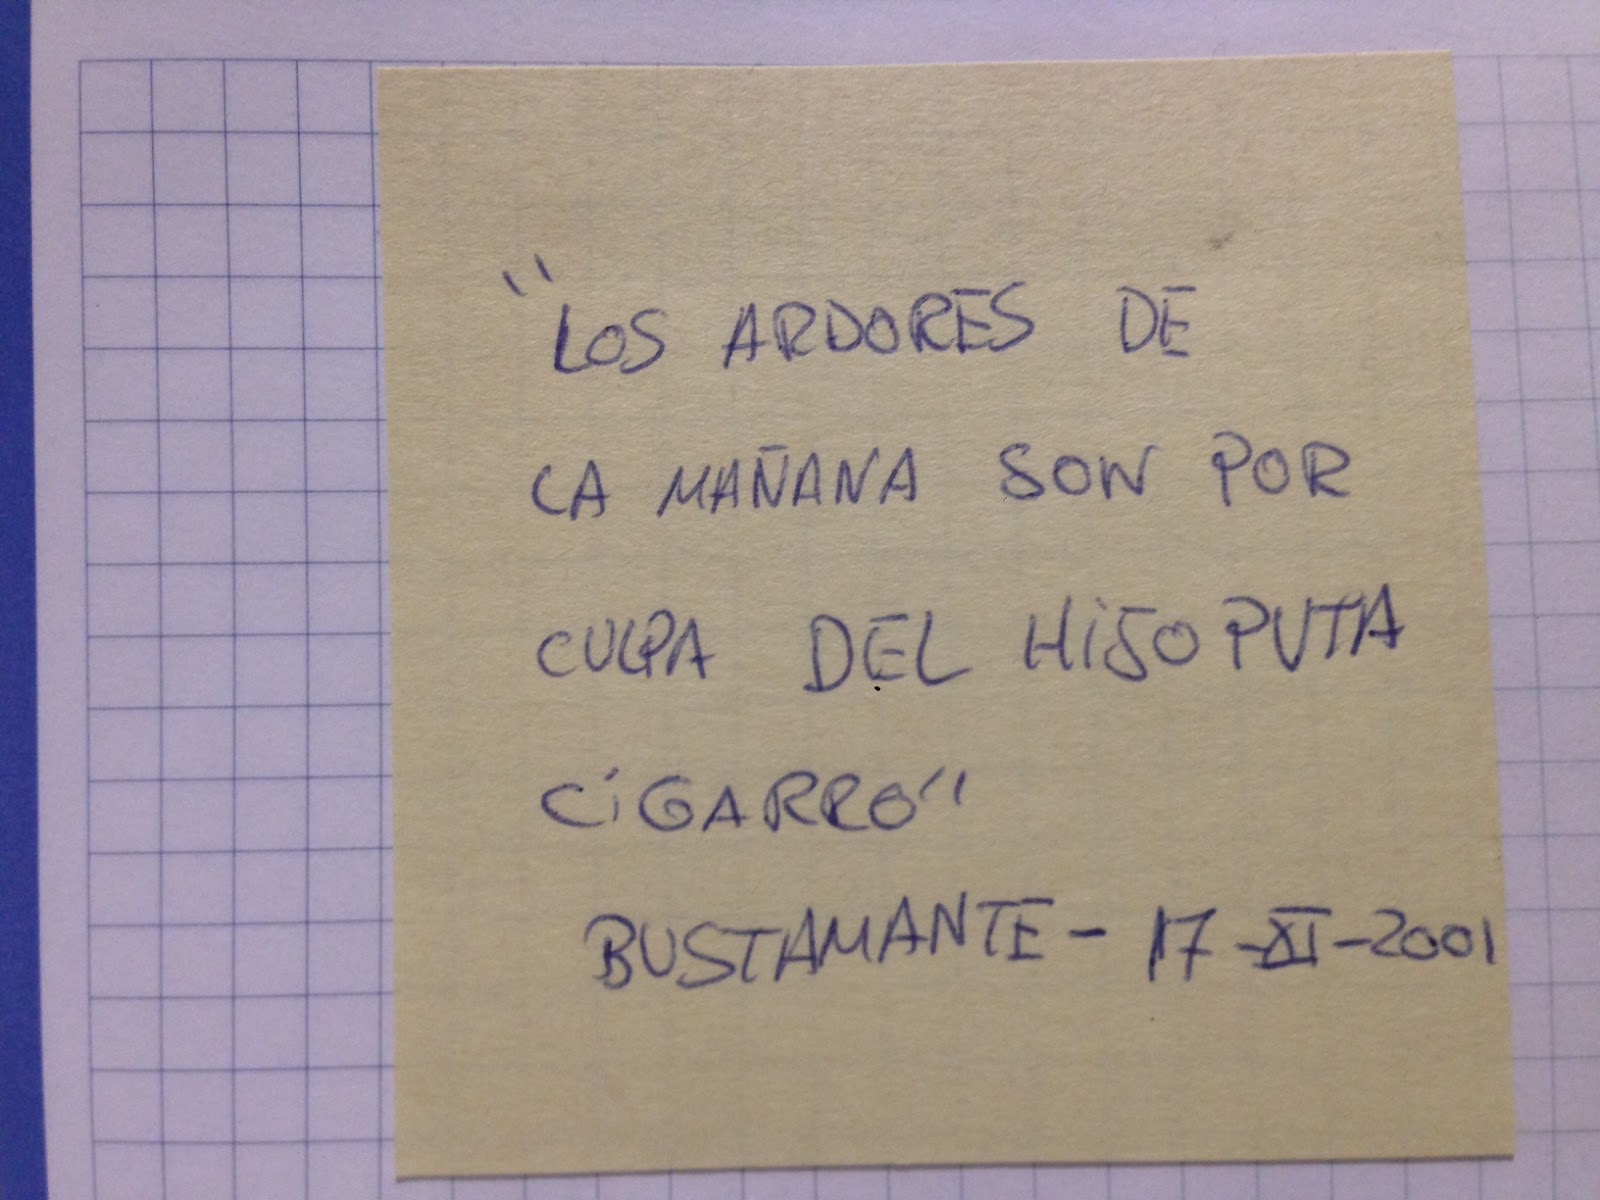 "LOS ARDORES DE
LA MAÑANA SON POR
CULPA DEL HIJOPUTA
CIGARRO"
BUSTAMANTE - 17-XI-2001